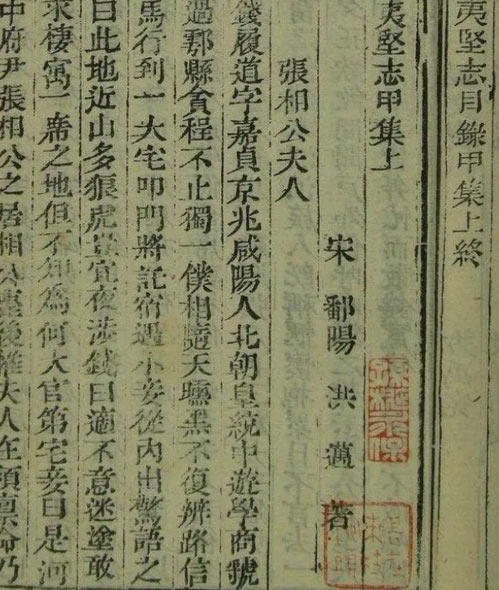 夷堅志目錄甲集上終
夷堅志甲集上
宋 鄱陽 洪 邁 著
張相公夫人
錢履道字嘉貞京兆咸陽人北朝皇統中遊學商虢
過鄠縣貪程不止獨一僕相隨天曛黑不復辨路信
馬行到一大宅叩門將託宿遇小妾從內出驚語之
曰此地近山多狼虎豈宜夜涉錢曰適不意迷塗敢
求棲寓一席之地但不知為何大官第宅妾曰是河
中府尹張相公之居相公薨後惟夫人在須稟命乃